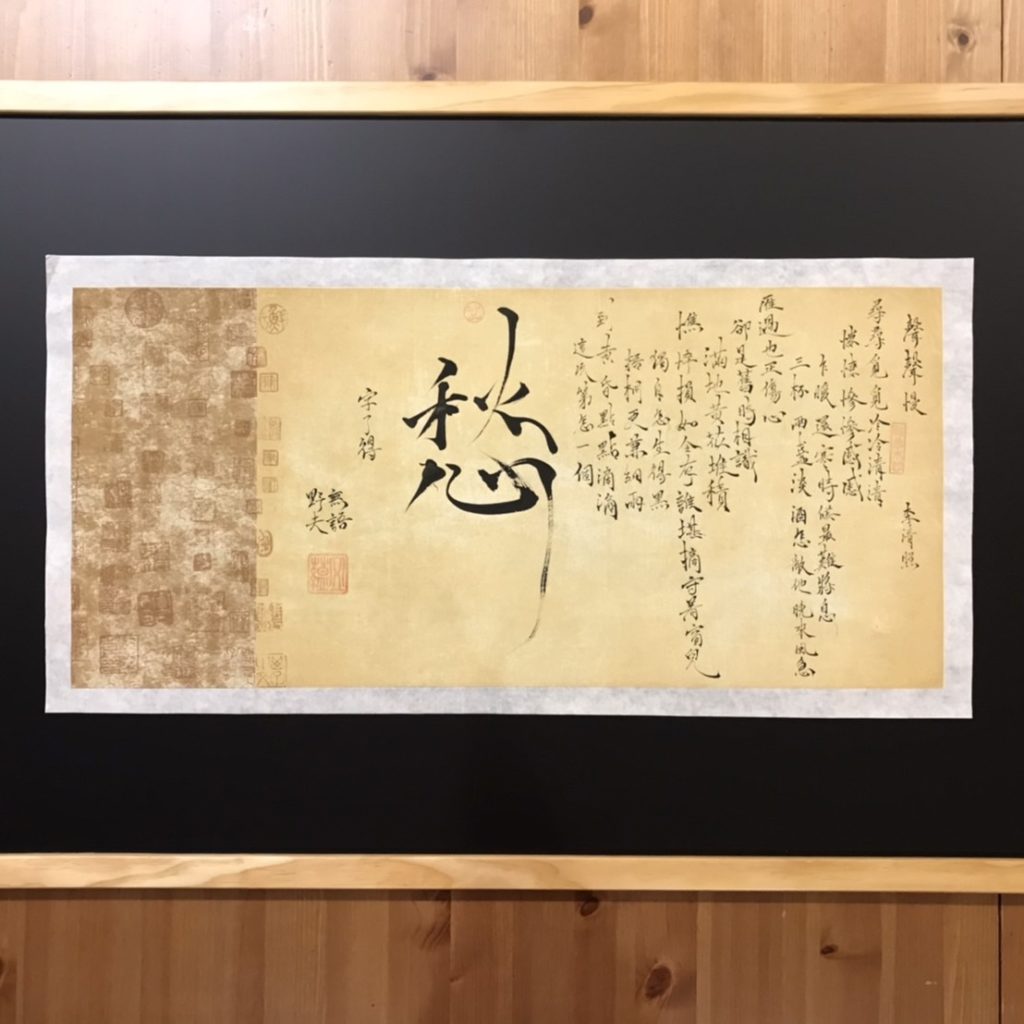 聲聲慢
李清照
尋尋覓覓冷冷清清
悽悽慘慘慼慼
乍暖還寒時候最難將息
三杯兩盞淡酒怎敵他晚來風急
雁過也正傷心
卻是舊時相識
滿地黃花堆積
憔悴損如今有誰堪摘守著窗兒
獨自怎生得黑
梧桐更兼細雨
到黃昏點點滴滴
這次第怎一個
愁
字了得
無語
野夫